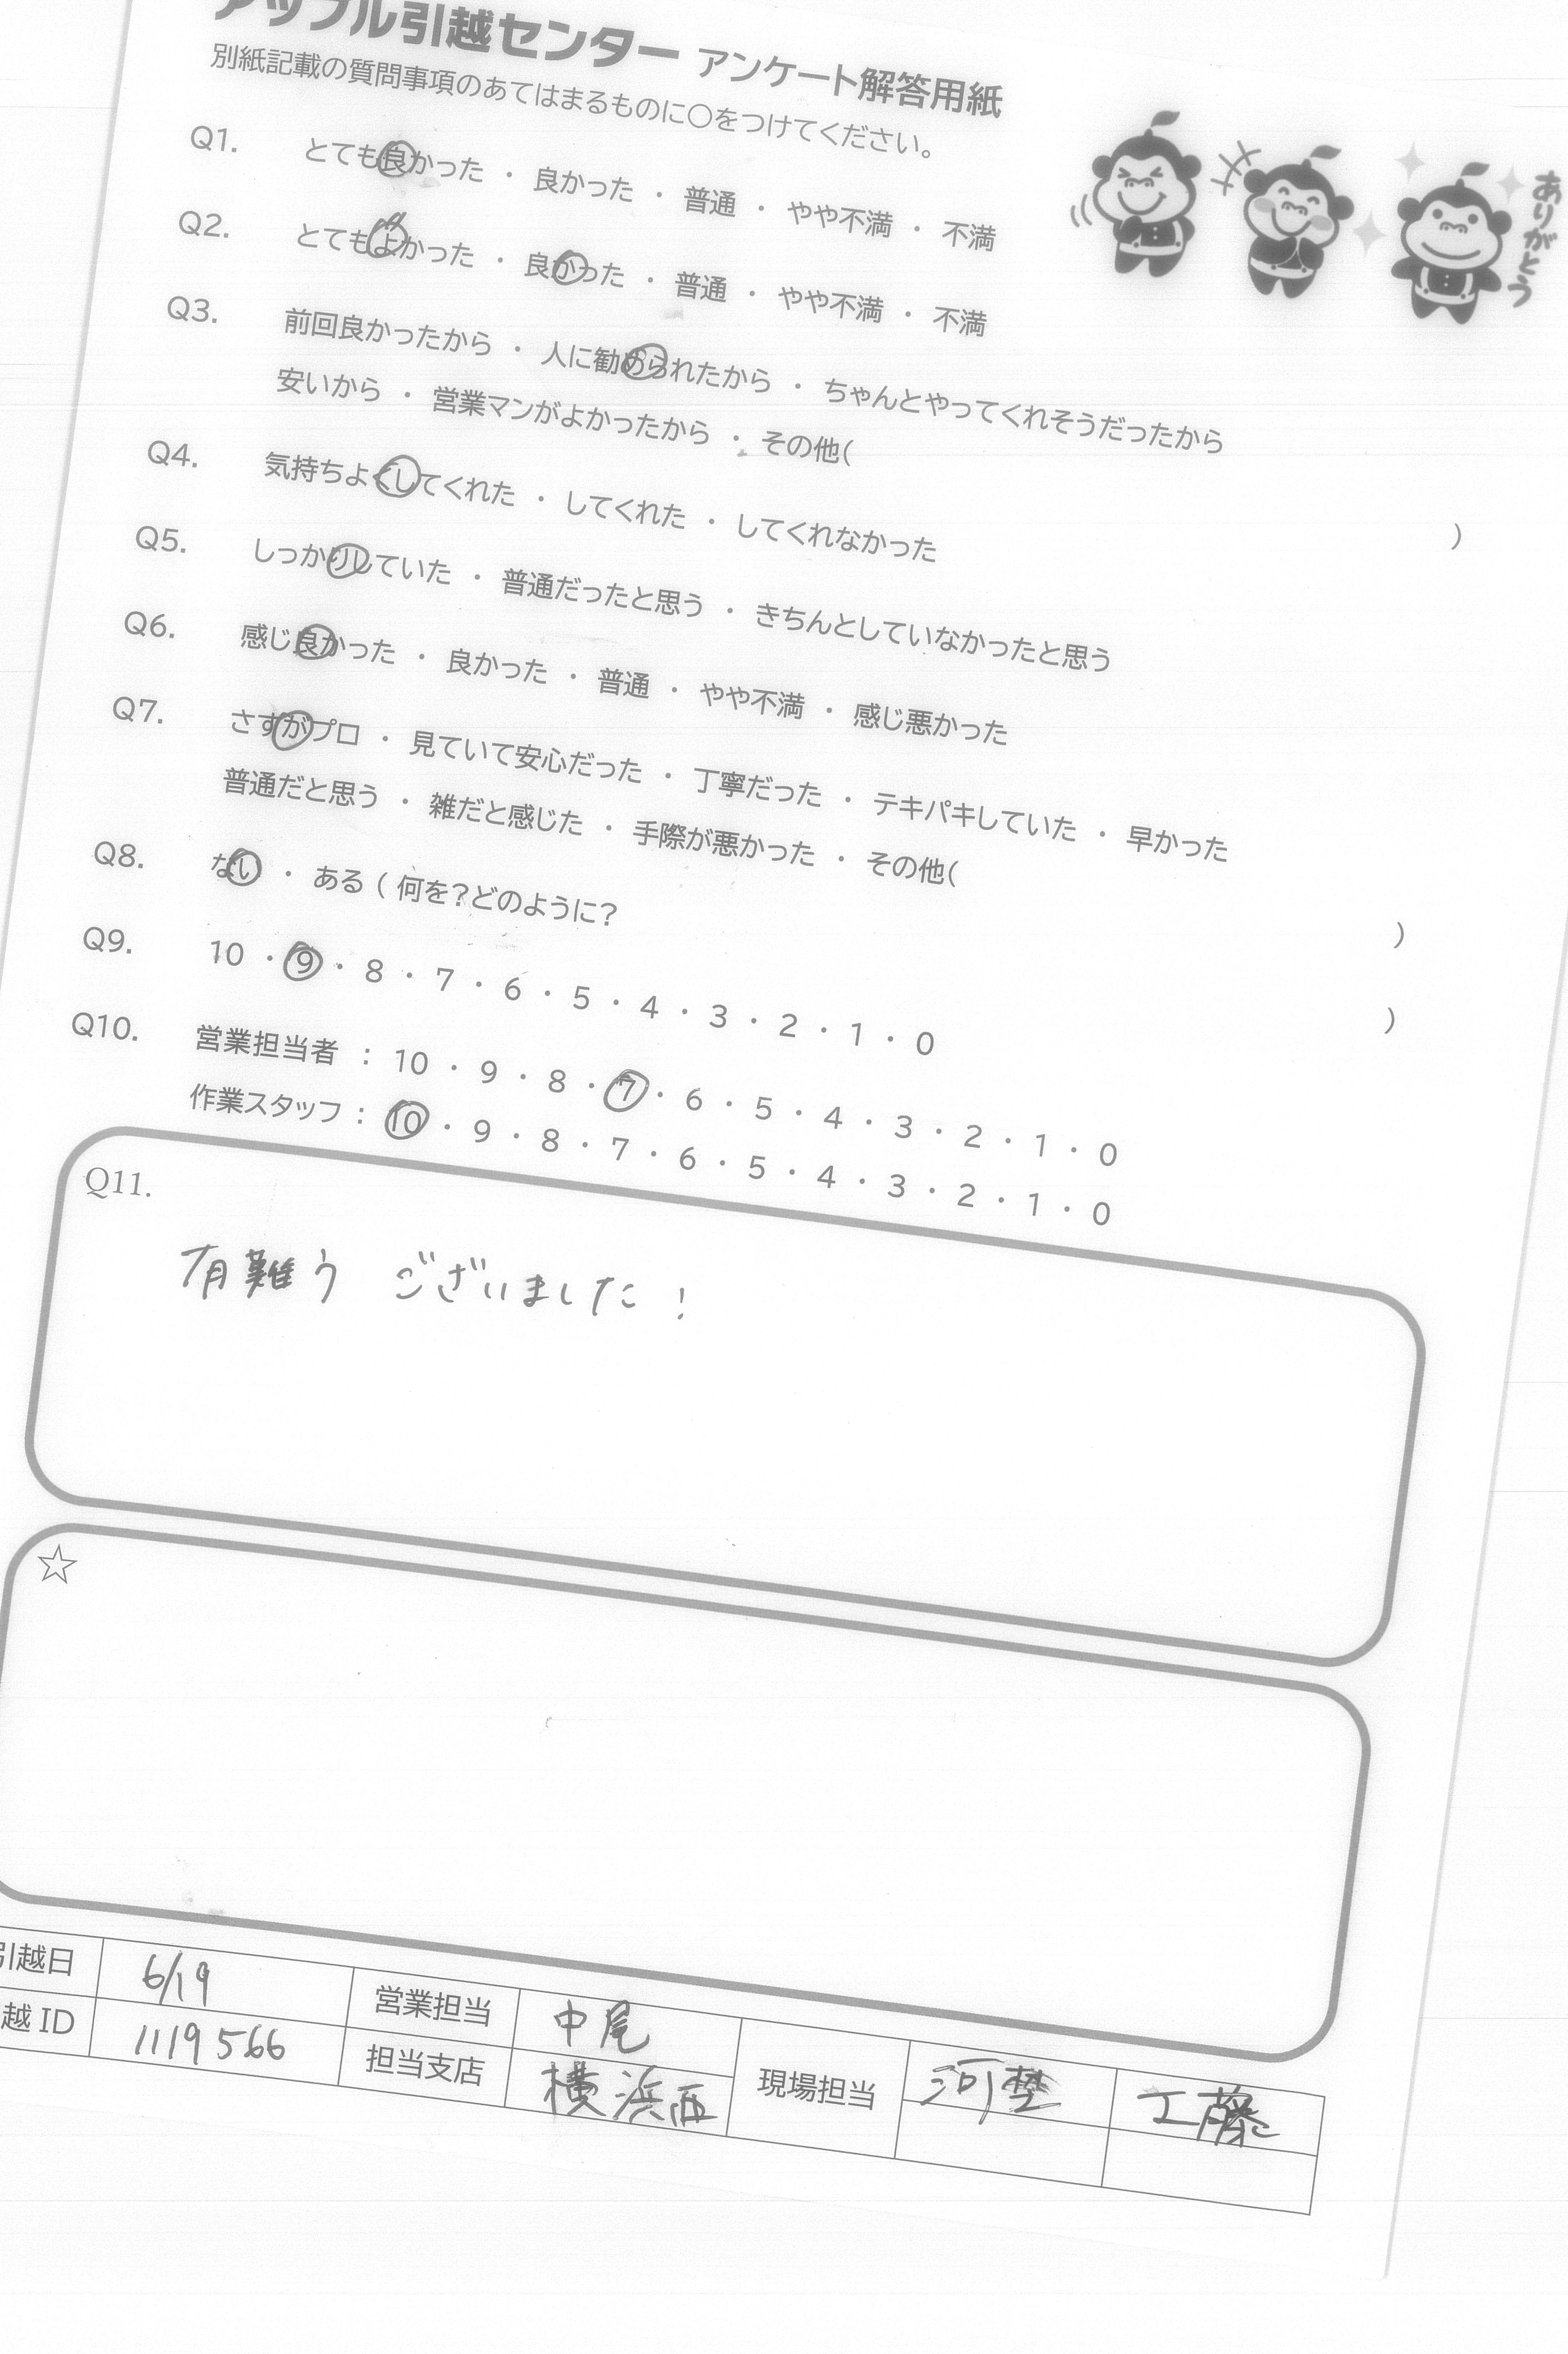 アップル引越センター アンケート解答用紙
別紙記載の質問事項のあてはまるものに○をつけてください。
ありがとう
Q1. とても良かった ・ 良かった ・ 普通 ・ やや不満 ・ 不満
Q2. とてもよかった ・ 良かった ・ 普通 ・ やや不満 ・ 不満
Q3. 前回良かったから ・ 人に勧められたから ・ ちゃんとやってくれそうだったから
安いから ・ 営業マンがよかったから ・ その他( )
Q4. 気持ちよくしてくれた ・ してくれた ・ してくれなかった
Q5. しっかりしていた ・ 普通だったと思う ・ きちんとしていなかったと思う
Q6. 感じ良かった ・ 良かった ・ 普通 ・ やや不満 ・ 感じ悪かった
Q7. さすがプロ ・ 見ていて安心だった ・ 丁寧だった ・ テキパキしていた ・ 早かった
普通だと思う ・ 雑だと感じた ・ 手際が悪かった ・ その他( )
Q8. ない ・ ある ( 何を?どのように? )
Q9. 10 ・ 9 ・ 8 ・ 7 ・ 6 ・ 5 ・ 4 ・ 3 ・ 2 ・ 1 ・ 0
Q10. 営業担当者 : 10 ・ 9 ・ 8 ・ 7 ・ 6 ・ 5 ・ 4 ・ 3 ・ 2 ・ 1 ・ 0
作業スタッフ : 10 ・ 9 ・ 8 ・ 7 ・ 6 ・ 5 ・ 4 ・ 3 ・ 2 ・ 1 ・ 0
Q11.
有難う ございました!
☆
引越日 6/19 営業担当 中尾
越 ID 1119566 担当支店 横浜西 現場担当 河埜 工藤